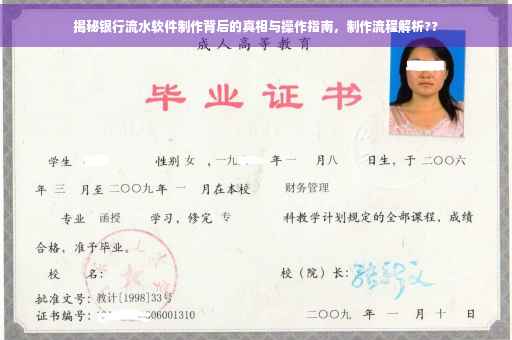 揭秘银行流水软件制作背后的真相与操作指南，制作流程解析??
成人高等教育
毕业证书
学生 性别 女 ，一九 年 一 月八 日生，于 二〇〇六
年 三 月至 二〇〇九 年 一 月在本校 财务管理
专业 函授 学习，修完 专 科教学计划规定的全部课程，成绩
合格，准予毕业。
校 名： 校（院）长：
批准文号：教计[1998]33号
证书编号： 06001310 二〇〇九 年 一 月 十 日